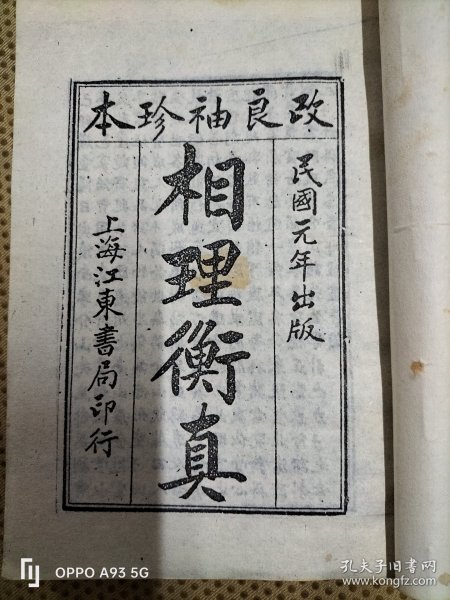 改良袖珍本
民國元年出版
相理衡真
上海江東書局印行
OPPO A93 5G
孔夫子旧书网
www.kongfz.com